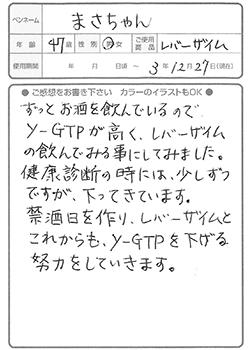 ペンネーム まさちゃん
年齢 47歳 性別 男・女 ご使用商品 レバーザイム
使用期間 年 月 日頃 〜 3年12月27日(現在)
● ご感想をお書き下さい カラーのイラストもOK ●
ずっとお酒を飲んでいるので
γ-GTPが高く、レバーザイム
の飲んでみる事にしてみました。
健康診断の時には、少しずつ
ですが、下ってきています。
禁酒日を作り、レバーザイムと
これからも、γ-GTPを下げる
努力をしていきます。